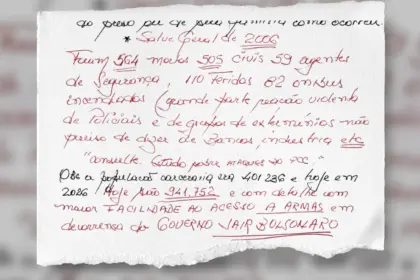 do preso ou de sua família como ocorreu.
* Salve Geral de 2006
Foram 564 mortos 505 civis 59 agentes
de Segurança, 110 feridos 82 ônibus
incendiados (grande parte reação violenta
de Policiais e de grupos de extermínios não
preciso de dizer de Bancos industria etc
"consulte. Estado sobre ataques do PCC."
Obs a população carceraria era 401 236 e hoje em
2026 Hoje são 941.752 e com detalhe com
maior FACILIDADE AO ACESSO A ARMAS em
decorrença do GOVERNO JAIR BOLSONARO